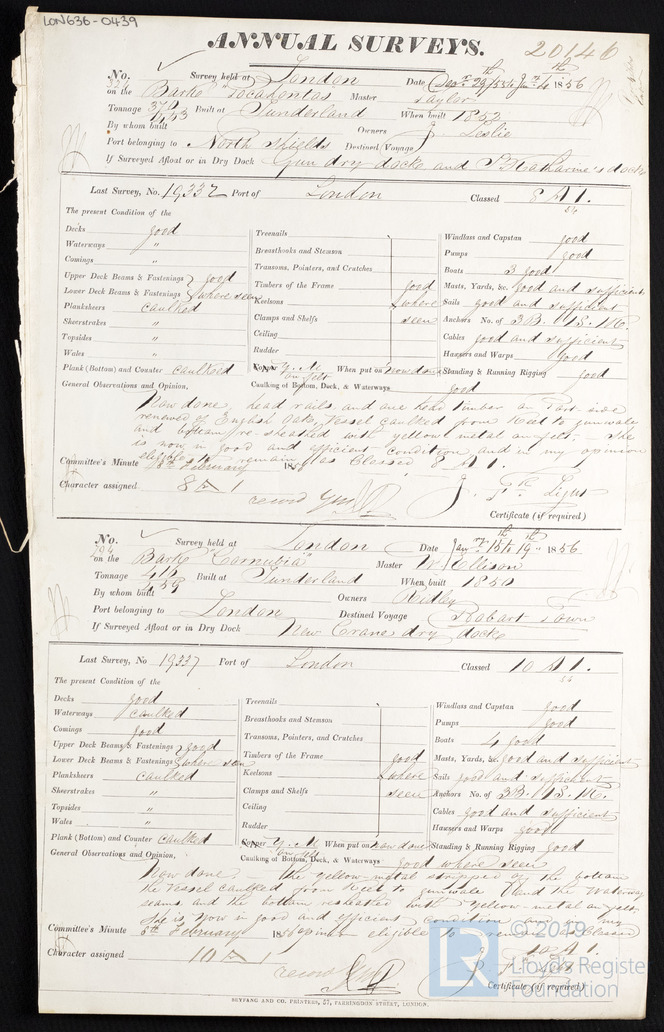 LON636-0439
ANNUAL SURVEYS.
20146
No. Survey held at London Date Decr 29th/55 to Jany 4th 1856
on the Barke "Pocahontas" Master Taylor
Tonnage 370 / 453 Built at Sunderland When built 1853
By whom built Owners J. Leslie
Port belonging to North Shields Destined Voyage
If Surveyed Afloat or in Dry Dock Gun dry dock and St Katharine's dock
Last Survey, No. 19332 Port of London Classed 8 A 1.
54
The present Condition of the
Decks good
Waterways "
Comings "
Upper Deck Beams & Fastenings } good
Lower Deck Beams & Fastenings } where seen
Planksheers caulked
Sheerstrakes "
Topsides "
Wales "
Plank (Bottom) and Counter caulked
Treenails
Breasthooks and Stemson
Transoms, Pointers, and Crutches
Timbers of the Frame good
Keelsons where
Clamps and Shelfs seen
Ceiling
Rudder
Copper Y. M on felt When put on now done
Caulking of Bottom, Deck, & Waterways good
Windlass and Capstan good
Pumps good
Boats 3 good
Masts, Yards, &c. good and sufficient
Sails good and sufficient
Anchors No. of 3 B. 1 S. 1 K.
Cables good and sufficient
Hawsers and Warps good
Standing & Running Rigging good
General Observations and Opinion,
Now done, head rails and one head timber on Port side
renewed of English Oak, Vessel caulked from Keel to gunwale
and bottom re-sheathed with yellow metal on felt - She
is now in good and efficient condition, and in my opinion
eligible to remain as Classed 8 A 1.
Committee's Minute February 1856
Character assigned 8 A 1
record
Certificate (if required)
No. Survey held at London Date Jany 15th to 19th 1856
194
on the Barke "Cornubia" Master W. Ellison
Tonnage 415 / 459 Built at Sunderland When built 1850
By whom built Owners Ridley
Port belonging to London Destined Voyage Hobart Town
If Surveyed Afloat or in Dry Dock New Crane dry dock
Last Survey, No 19337 Port of London Classed 10 A 1.
The present Condition of the
Decks good
Waterways caulked
Comings good
Upper Deck Beams & Fastenings } good
Lower Deck Beams & Fastenings } where seen
Planksheers caulked
Sheerstrakes "
Topsides "
Wales "
Plank (Bottom) and Counter caulked
Treenails
Breasthooks and Stemson
Transoms, Pointers, and Crutches
Timbers of the Frame good
Keelsons where
Clamps and Shelfs seen
Ceiling
Rudder
Copper Y. M on felt When put on now done
Caulking of Bottom, Deck, & Waterways good where seen
Windlass and Capstan good
Pumps good
Boats 4 good
Masts, Yards, &c. good and sufficient
Sails good and sufficient
Anchors No. of 3 B. 1 S. 1 K.
Cables good and sufficient
Hawsers and Warps good
Standing & Running Rigging good
General Observations and Opinion,
Now done - the yellow-metal stripped off the bottom
the Vessel caulked from Keel to gunwale and the Waterway
seams, and the bottom resheathed with yellow-metal on felt
She is now in good and efficient condition and in my
opinion eligible to remain as Classed
10 A 1.
Committee's Minute 8th February 1856
Character assigned 10 A 1
record
Certificate (if required)
© 2019
LR Lloyd's Register
Foundation
SEYFANG AND CO. PRINTERS, 57, FARRINGDON STREET, LONDON.